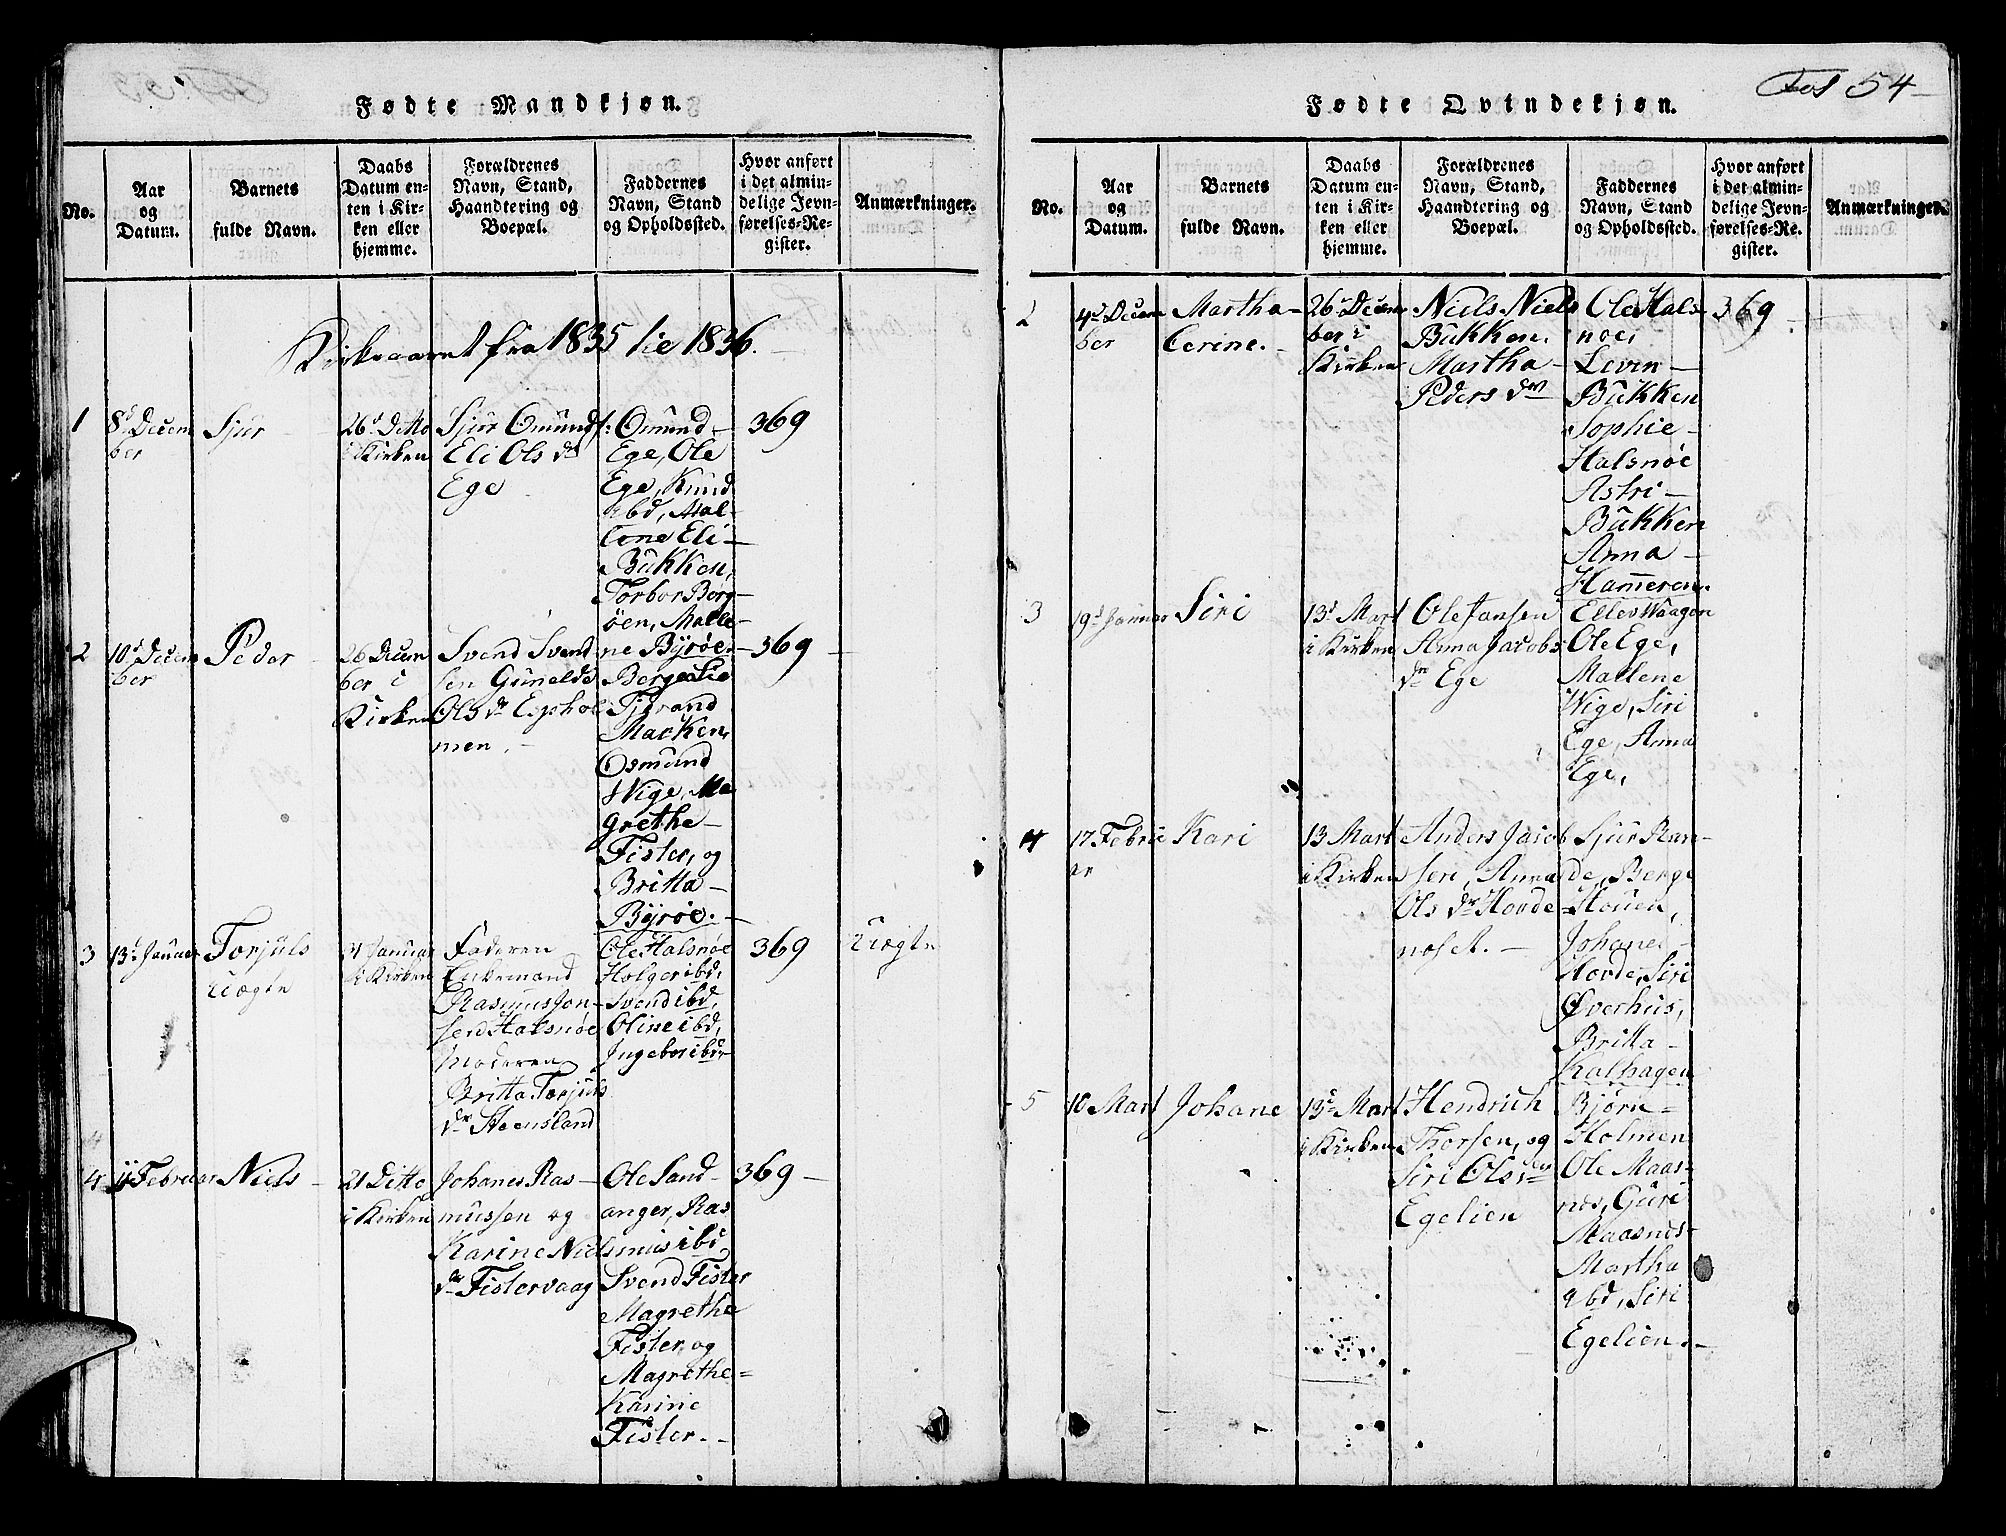 Fødte Mandkjøn.
No.
Aar
og
Datum.
Barnets
fulde Navn.
Daabs
Datum en-
ten i Kir-
ken eller
hjemme.
Forældrenes
Navn, Stand,
Haandtering og
Boepæl.
Faddernes
Navn, Stand
og Opholdssted.
Hvor anført
i det almin-
delige Jevn-
førelses-Re-
gister.
Anmærkninger.
Kirkeaaret fra 1835 til 1836.
1
8d Decem
ber
Sjur
26d Ditto
i Kirken
Sjur Omunds:
Eli Ols dr
Ege
Omund
Ege, Ole
Ege, Knud
ibd, Mal-
Cone Eli
Bukken,
Torbor Borg-
öen, Malle-
ne Byrøe.
369
2
10d Decem
ber
Peder
26 Decem
ber i
Kirken
Svend Svend
sen Gunelde
Ols dr Egehol
men.
Berge Lie
Tjerand
Macken,
Osmund
Wige, Ma
grethe
Fister, og
Britta
Byrøe.
369
3
13d Januar
Torjuls
Uægte
31 Januar
i Kirken
Faderen
Enkemand
Rasmus Jon-
sen Halsnøe
Moderen
Britta Torjuls
dr Steensland
Ole Halsnøe
Holger ibd,
Svend ibd,
Oline ibd,
Ingebor ibd
369
Uægte
4
11 Februar
Niels
21 Ditto
i Kirken
Johanes Ras-
mussen og
Karine Niels
dr Fistervaag
Ole Sand-
anger, Ras
mus ibd,
Svend Fister
Magrethe
Fister, og
Magrethe
Karine
Fister.
369
Fol 54
Fødte Qvindekjøn.
No.
Aar
og
Datum.
Barnets
fulde Navn.
Daabs
Datum en-
ten i Kir-
ken eller
hjemme.
Forældrenes
Navn, Stand,
Haandtering og
Boepæl.
Faddernes
Navn, Stand
og Opholdssted.
Hvor anført
i det almin-
delige Jevn-
førelses-Re-
gister.
Anmærkninger.
2
4d Decem
ber
Martha
Cerine.
26d Decem
ber i
Kirken
Niels Niels
Bukken,
Martha
Peders dr
Ole Hals
noe,
Leven
Bukken
Sophie
Halsnøe
Astri
Bukken
Anna
Hameren.
369
3
19d Januar
Siri
13d Mart
i Kirken
Ole Jansen
Anna Jacobs
dr Ege
Ellev Waagen
Ole Ege,
Mallene
Wige, Siri
Ege, Anna
Ege,
4
17 Febru
ar
Kari
13 Mart
i Kirken
Anders Jacob
sen, Anna
Ols dr Horde
noset.
Sjur Ran-
de, Berge
Houen,
Johanes
Horde, Siri
Øverhus,
Britta
Kalhagen
5
10 Mart
Johane
13d Mart
i Kirken
Hendrich
Thorsen, og
Siri Ols dr
Egelien
Bjørn
Holmen
Ole Maas-
nes, Guri
Maasnes
Martha
ibd, Siri
Egelien.